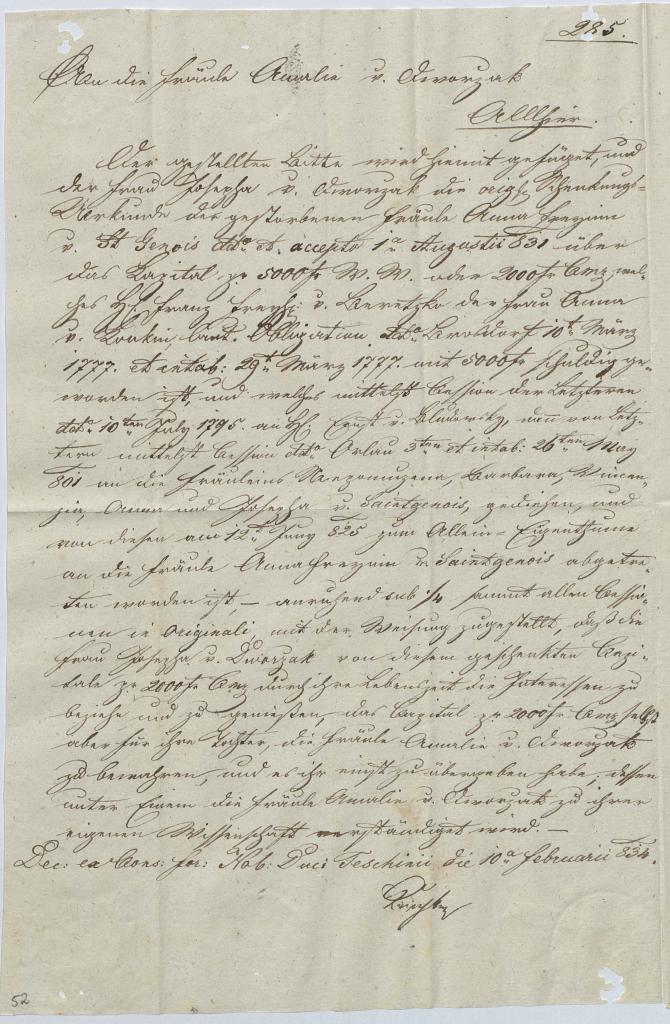 285.
An die Fräule Amalie v. Dworzak
Allhier.
Der gestellten Bitte wird hiemit gefüget, und
der Frau Josepha v. Dworzak die orig. Schenkungs-
Urkunde der gestorbenen Fräule Anna Freyinn
v. St Genois dto et accepto 1a Augustii 831 über
das Kapital pr 5000 fr W. W. oder 2000 fr Cmz, wel-
ches H. Franz Freyh: v. Beretzko der Frau Anna
v. laut Obligation dto 10t März
1777. et intab: 29t März 1777. mit 5000 fr schuldig ge-
worden ist, und welches mittelst Cession der Letzteren
dto 10ten July 1795. an H. Ernst v. Bludowitz, dan von Letz-
tern mittelst Cession dto Orlau 3ten et intab: 26ten May
801 an die Fräuleins Nepomuzena, Barbara, Vincen-
zia, Anna und Josepha v. Saintgenois, gediehen, und
von diesen am 12t Juny 825 zum Allein-Eigenthume
an die Fräule Anna Freyinn v. Saintgenois abgetre-
ten worden ist, – anruhend sub ·/4 sammt allen Cessio-
nen in originali, mit der Weisung zugestellt, daß die
Frau Josepha v. Dworzak von diesem geschenkten Capi-
tale pr 2000 fr Cmz durch ihre Lebenszeit die Interessen zu
beziehe und zu genießen, das Capital pr 2000 fr Cmz selbst
aber für ihre Tochter, die Fräule Amalie v. Dworzak
zu bewahren, und es ihr einst zu übergeben habe. dessen
unter Einem die Fräule Amalie v. Dworzak zu ihrer
eigenen Wissenschaft verständiget wird. –
Dec: ex Cons: for: Nob: Duci Teschinii die 10a Februarii 834.
52